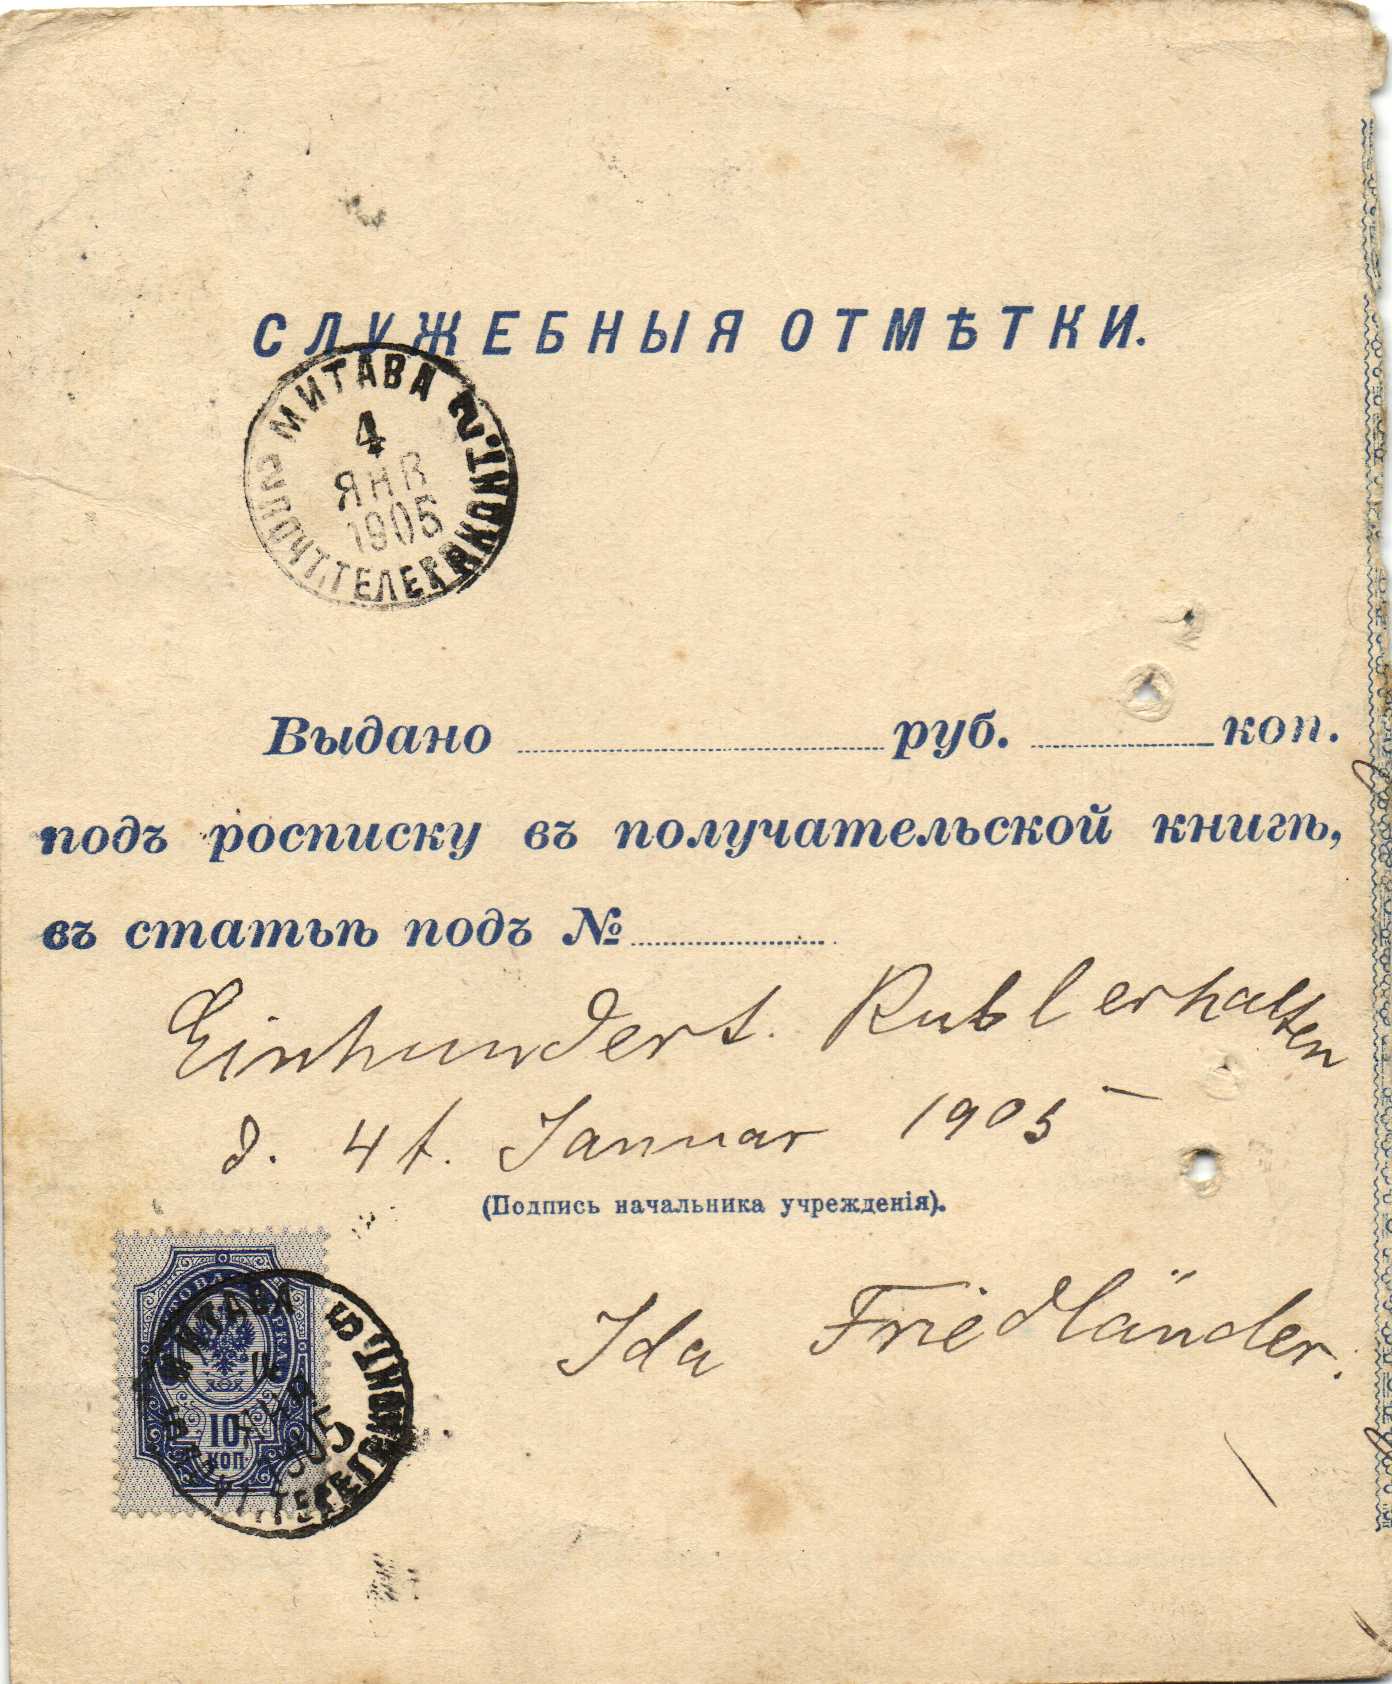 СЛУЖЕБНЫЯ ОТМѢТКИ.
МИТАВА 2
4
ЯНВ
1905
2 ПОЧТ. ТЕЛЕГР. КОНТ.
Выдано руб. коп.
подъ росписку въ получательской книгѣ,
въ статьѣ подъ №
Einhundert. Rubl erhalten
d. 4t. Januar 1905
(Подпись начальника учрежденія).
Ida Friedländer.
МИТАВА
10
КОП
1905